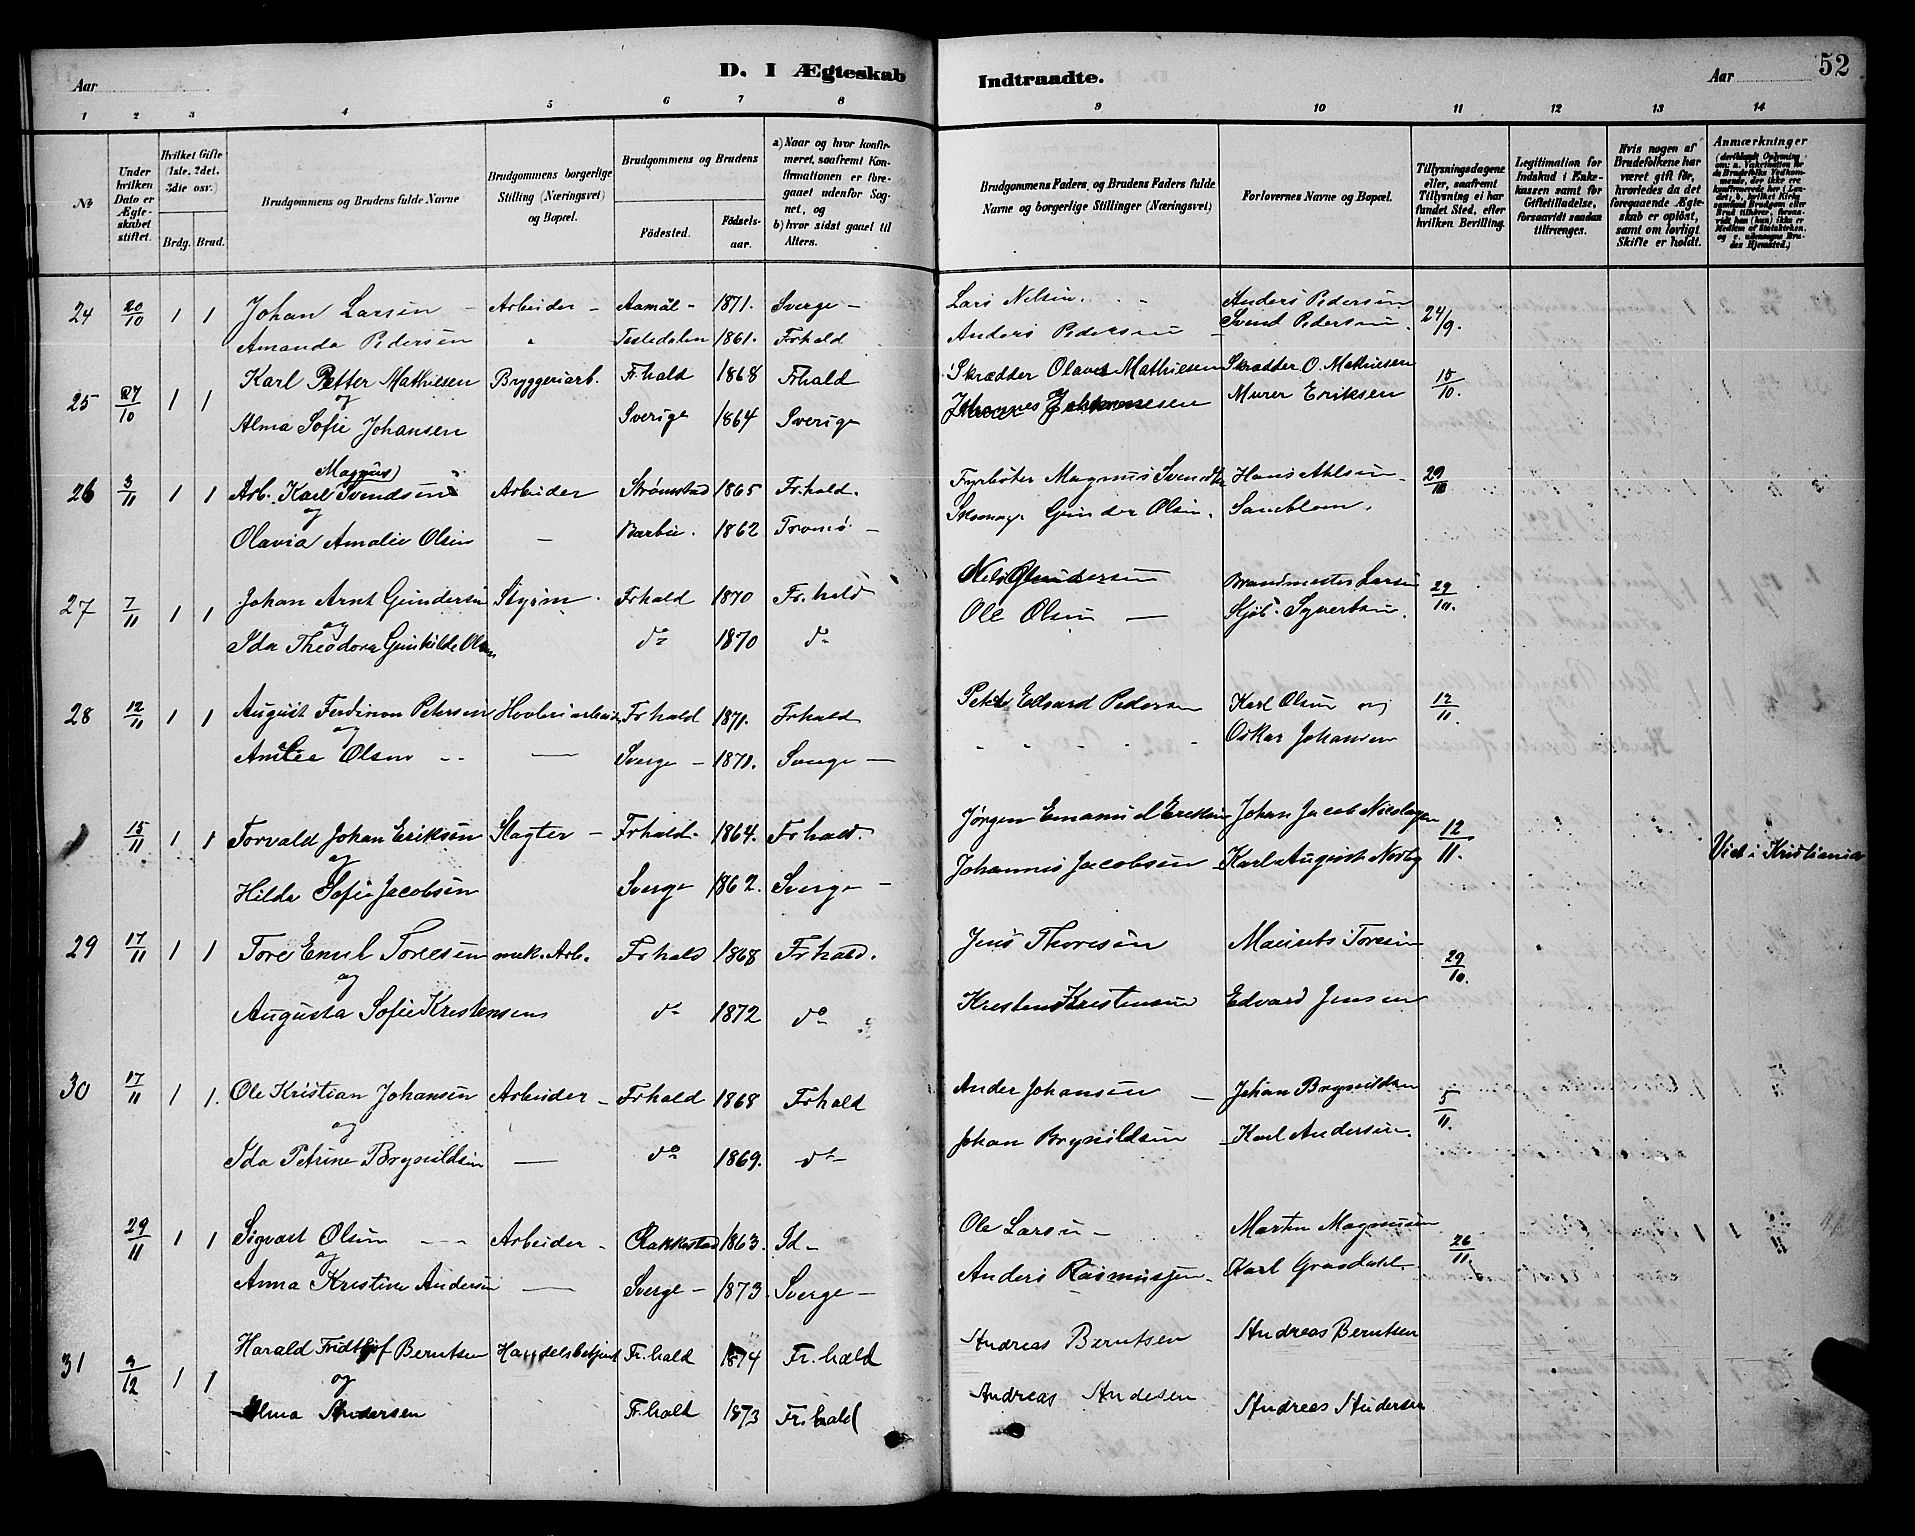 Aar
D. I Ægteskab
Indtraadte.
Aar
52
1 2 3 4 5 6 7 8 9 10 11 12 13 14
№
Under hvilken Dato er Ægteskabet stiftet.
Hvilket Gifte (1ste, 2det, 3die osv.)
Brdg. Brud.
Brudgommens og Brudens fulde Navne
Brudgommens borgerlige Stilling (Næringsvei) og Bopæl.
Brudgommens og Brudens
Födested.
Födselsaar.
a) Naar og hvor konfirmeret, saafremt Konfirmationen er foregaaet udenfor Sognet, og
b) hvor sidst gaaet til Alters.
Brudgommens Faders, og Brudens Faders fulde Navne og borgerlige Stillinger (Næringsvei)
Forlovernes Navne og Bopæl.
Tillysningsdagene eller, saafremt Tillysning ei har fundet Sted, efter hvilken Bevilling.
Legitimation for Indskud i Enkekassen samt for Giftetilladelse, forsaavidt saadan tiltrænges.
Hvis nogen af Brudefolkene har været gift før, hvorledes da det foregaaende Ægteskab er opløst, samt om lovligt Skifte er holdt.
Anmærkninger
24 20/10 1 1 Johan Larsen - Arbeider - Aamål - 1871. Sverge - Lars Nelsen. Anders Pedersen 24/9.
Amanda Pedersen " Tistedalen 1861. Frhald Anders Pedersen Svend Pedersen.
25 27/10 1 1 Karl Petter Mathiesen Bryggeriarb. Fr.hald 1868 Frhald Skrædder Olaves Mathiesen Skrædder O. Mathiesen 15/10.
og
Alma Sofie Johansen Sverige 1864 Sverige Murer Eriksen
26 3/11 1 1 Arb. Karl Magnus Svendsen Arbeider Strømstad 1865 Fr.hald. Fyrbøter Magnus Svendsen Hans Ahlsen 29/10
og
Olavia Amalie Olsen - Barbu. 1862 Tromø - Gunder Olsen. Sandblom.
27 7/11 1 1 Johan Arnt Gundersen Frhald 1870 Fr.hald Nels Gundersen Brandmester Larsen 29/10.
og
Ida Theodora Gunhilde Olsen do 1870 do Ole Olsen - Syvertsen.
28 12/11 1 1 August Ferdinan Petersen Høvleriarbeid Frhald 1871. Frhald Peter Edvard Pedersen Karl Olsen og 12/11.
og
Amilie Olsen - Sverge - 1871. Sverge - Oskar Johansen
15/11 1 1 Torvald Johan Eriksen Slagter - Frhald. 1864. Frhald. Jørgen Emanuel Eriksen Johan Jacob Nicolaysen 12/11. Viet i Kristiania
og
Hilda Sofie Jacobsen Sverge 1862. Sverge - Johannes Jacobsen Karl August Norby
29 17/11 1 1 Tore Emil Toresen mek. Arb. Frhald 1868 Frhald. Jens Thoresen Toresen 29/10.
og
Augusta Sofie Kristensens do 1872 do Kristen Kristensen Edvard Jensen
30 17/11 1 1. Ole Kristian Johansen Arbeider - Frhald 1868 Frhald Ander Johansen - Johan Brynildsen 5/11.
og
Ida Petrine Brynildsen - do 1869. do Johan Brynildsen Karl Andersen.
29/11 1 1 Sigvart Olsen - - - Arbeider - Rakkestad 1863. Id - Ole Larsen - Martin Magnusen 26/11.
og
Anna Kristine Andersen - Sverge - 1873. Sverge - Anders Rasmussen. Karl Grasdahl
31 3/12 1 1 Harald Fridthjof Berntsen Handelsbetjent Fr.hald 1874 Fr.hald Andreas Berntsen Andreas Berntsen
og
Alma Andersen Fr.hald 1873 Fr.hald Andreas Andesen Andreas Andersen